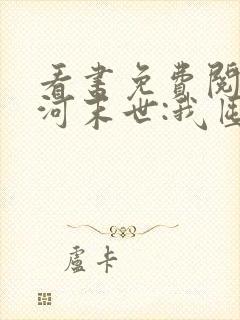 看書免費閱
河末世:我
盧卡